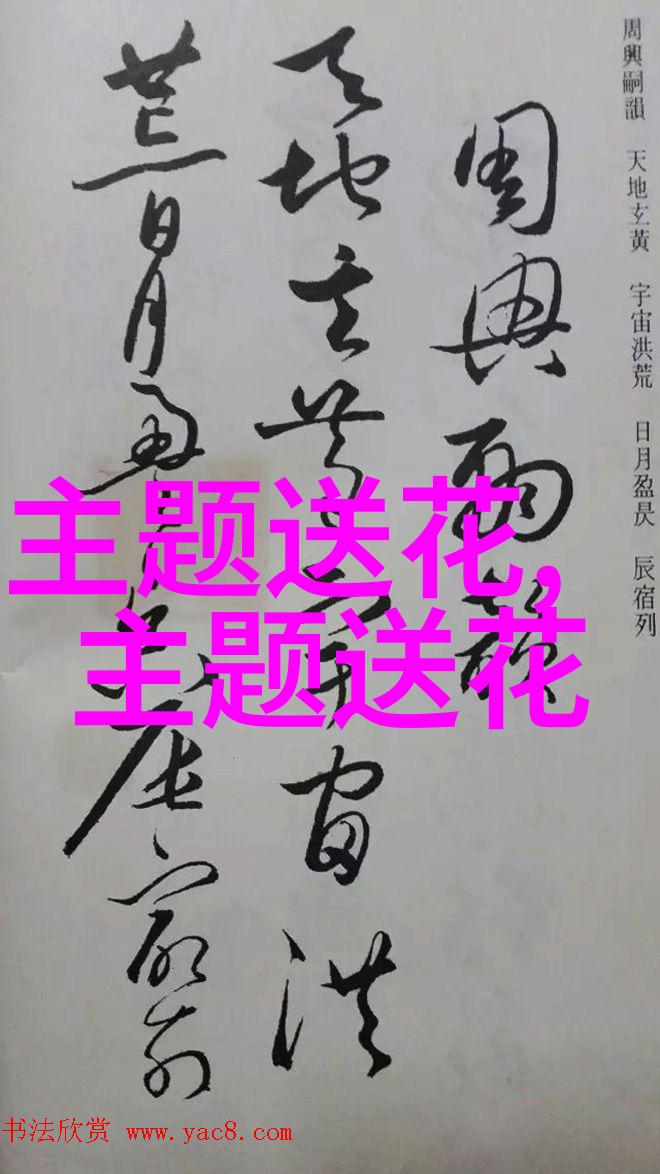 周興嗣韻　天地玄黃　宇宙洪荒　日月盈昃　辰宿列
周興嗣韻
天地玄黃宇宙洪
荒日月盈昃辰宿列
主题送花,
主题送花
书法欣赏 www.yac8.com